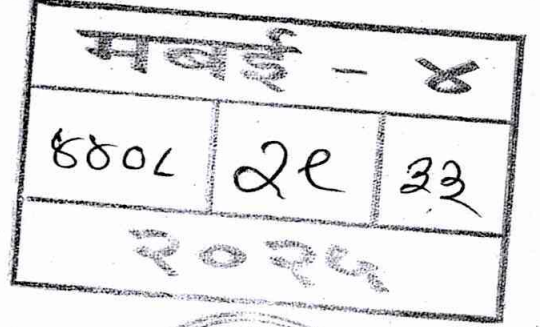 मबई - ४
४४०८ २९ ३३
२०२५